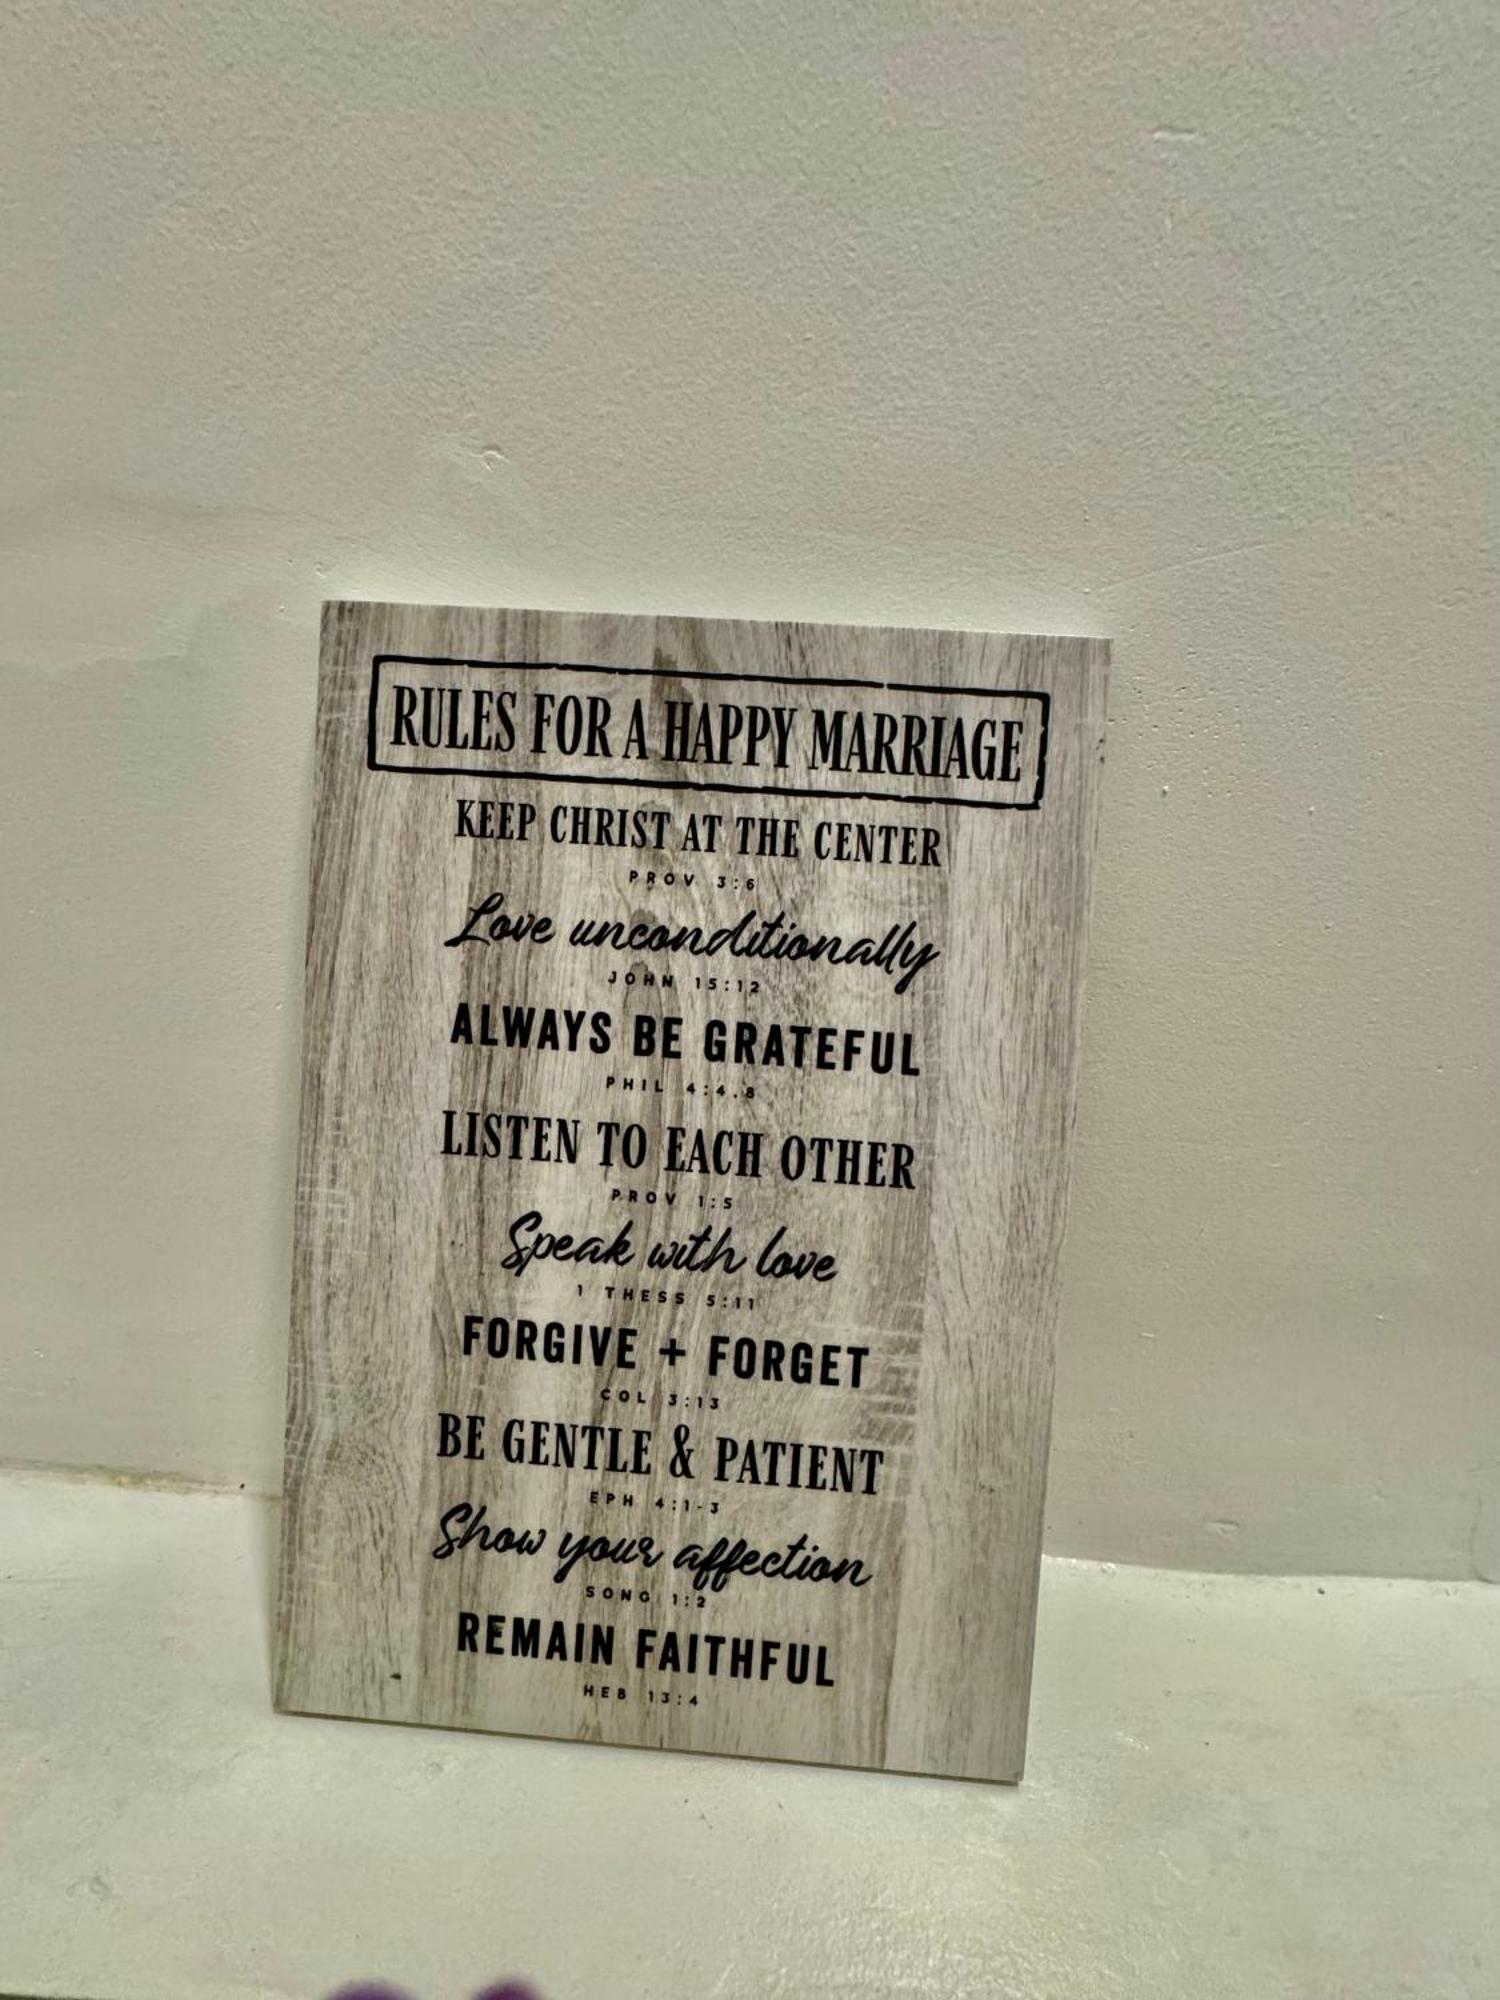 RULES FOR A HAPPY MARRIAGE
KEEP CHRIST AT THE CENTER
PROV 3:6
Love unconditionally
JOHN 15:12
ALWAYS BE GRATEFUL
PHIL 4:4,8
LISTEN TO EACH OTHER
PROV 1:5
Speak with love
1 THESS 5:11
FORGIVE + FORGET
COL 3:13
BE GENTLE & PATIENT
EPH 4:1-3
Show your affection
SONG 1:2
REMAIN FAITHFUL
HEB 13:4